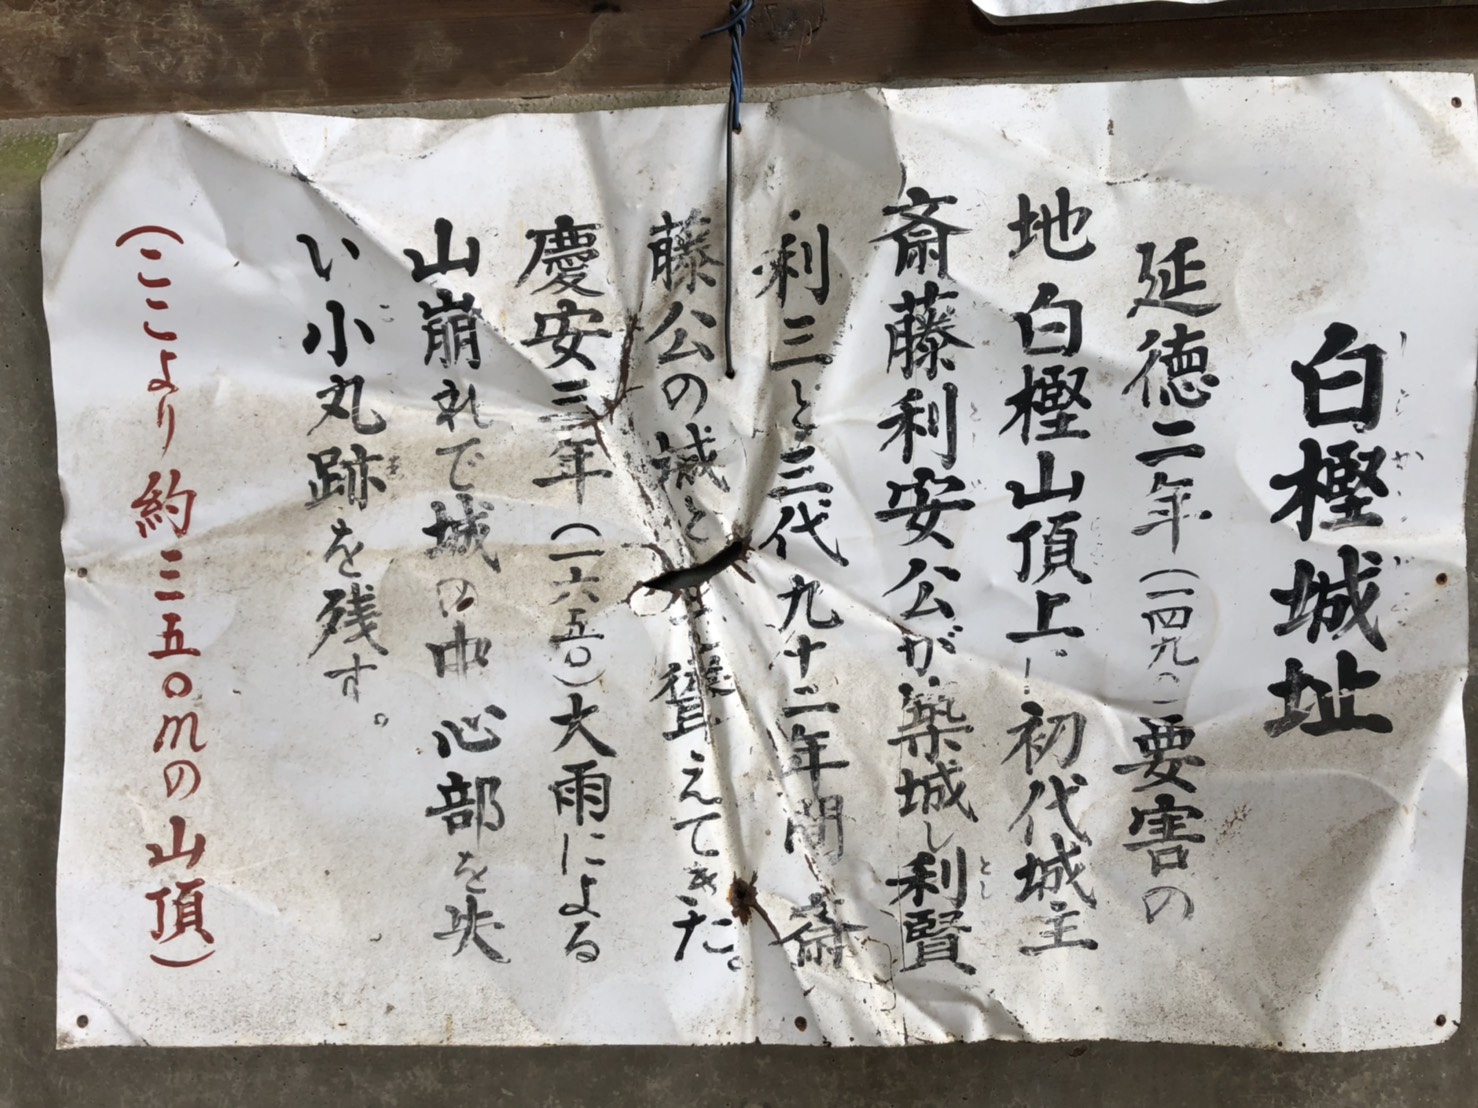 白樫城址
延徳二年(一四九〇)要害の
地白樫山頂上に初代城主
斎藤利安公が築城し利賢
利三と三代九十二年間斎
藤公の城と 聳えてきた。
慶安三年(一六五〇)大雨による
山崩れで城の中心部を失
い小丸跡を残す。
(ここより約三五〇mの山頂)